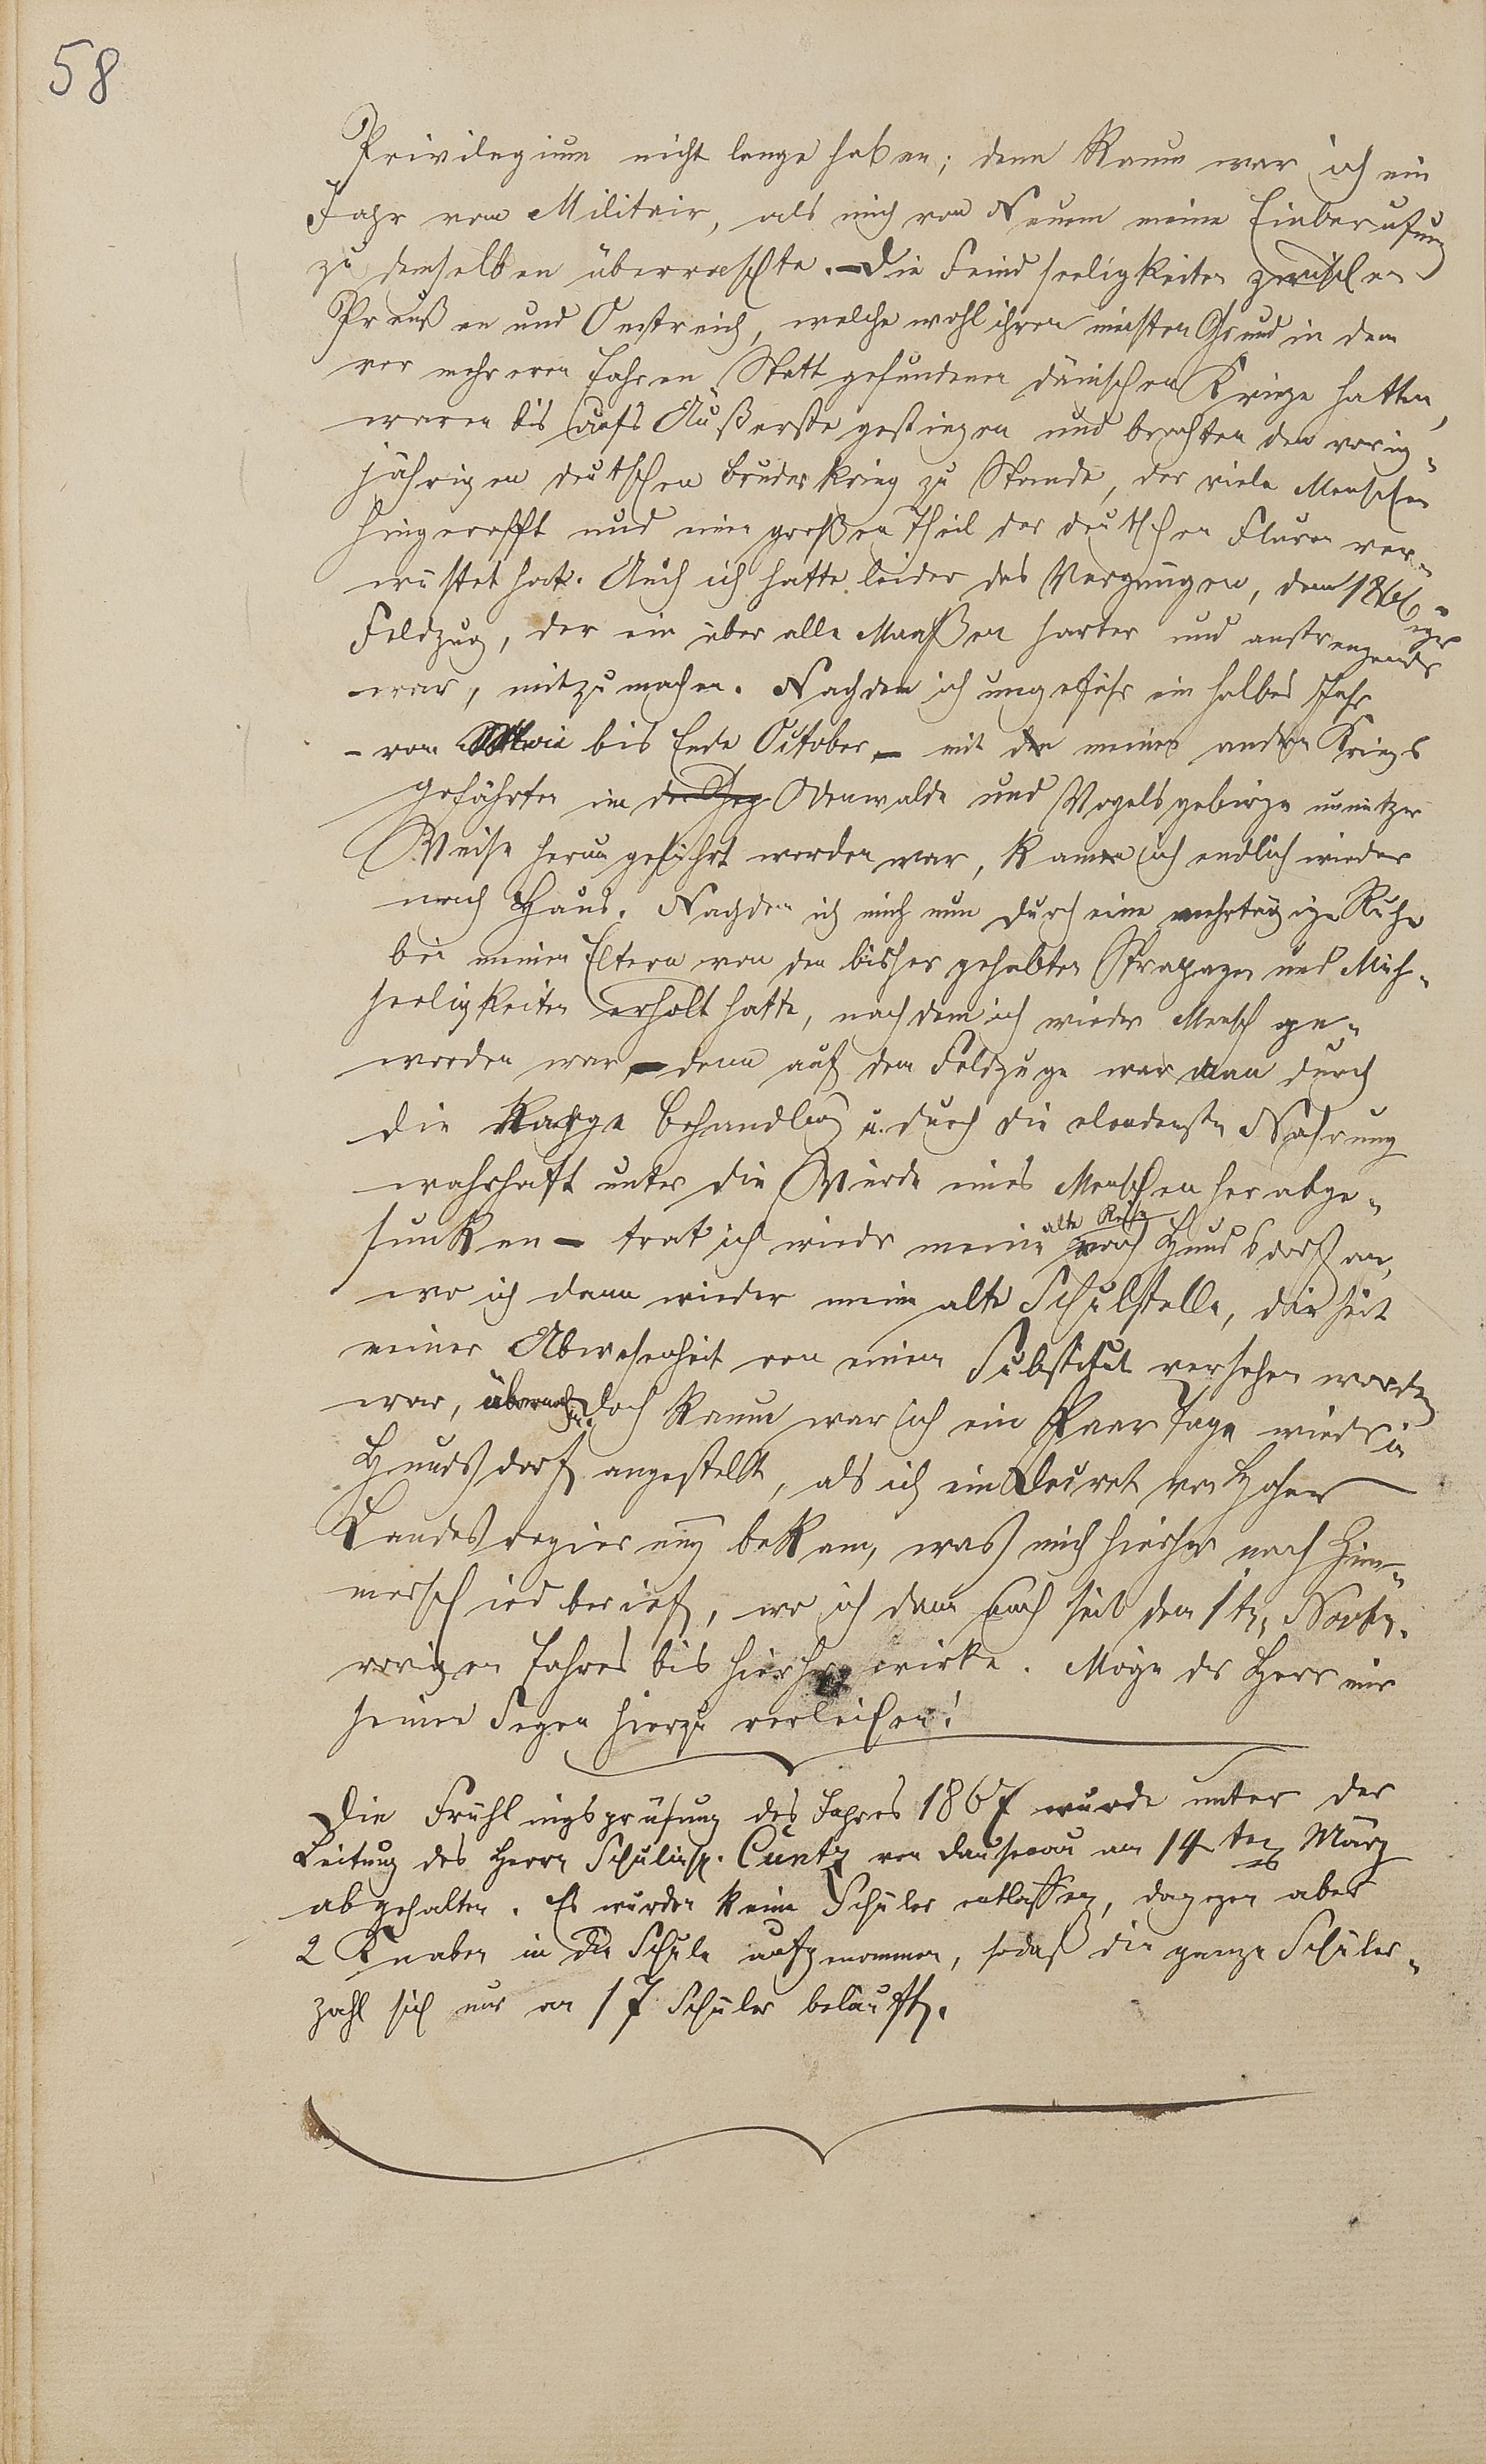 58
Privilegium nicht lange haben; denn kaum war ich ein
Jahr vom Militair, als mich von Neuem meine Einberufung
zu demselben überraschte. – Die Feindseeligkeiten zwischen
Preußen und Oestreich, welche wohl ihren meisten Grund in dem
vor mehreren Jahren Statt gefundenen dänischen Kriege hatten,
waren bis aufs Äußerste gestiegen und brachten den vorig-
jährigen deutschen Bruderkrieg zu Stande, der viele Menschen
hingerafft und einen großen Theil der deutschen Fluren ver-
wüstet hat. Auch ich hatte leider das Vergnügen, den 1866-
iger
Feldzug, der ein über alle Maaßen harter und anstrengender
war, mitzumachen. Nachdem ich ungefähr ein halbes Jahr
– von bis Ende October – mit meinen andern Kriegs
gefährten im der Geg Odenwalde und Vogelsgebirge unnützer
Weise herumgeführt worden war, kam ich endlich wieder
nach Haus. Nachdem ich mich nun durch eine mehrtägige Ruhe
bei meinen Eltern von den bisher gehabten Strapazen und Müh-
seeligkeiten erholt hatte, nachdem ich wieder Mensch ge-
worden war, – denn auf dem Feldzuge war man durch
die Behandlung u. durch die elendenste Nahrung
wahrhaft unter die Würde eines Menschen herabge-
sunken – trat ich wieder meine alte Reise nach Hundsdorf an,
wo ich dann wieder meine alte Schulstelle, die seit
meiner Abwesenheit von einem Substitut versehen worden
war, übernahm. Doch kaum war ich ein Paar Tage wieder in
Hundsdorf angestellt, als ich ein Decret von Hoher
Landesregierung bekam, was mich hierher nach Zim-
merschied berief, wo ich denn auch seit dem 1ten Novbr.
vorigen Jahres bis hierher wirke. Möge der Herr mir
seinen Segen hierzu verleihen!
Die Frühlingsprüfung des Jahres 1867 wurde unter der
Leitung des Herrn Schulinsp. Cuntz von Dausenau am 14ten März
abgehalten. Es wurden keine Schüler entlassen, dagegen aber
2 Knaben in die Schule aufgenommen, sodaß die ganze Schüler-
zahl sich nur an 17 Schüler beläuft.